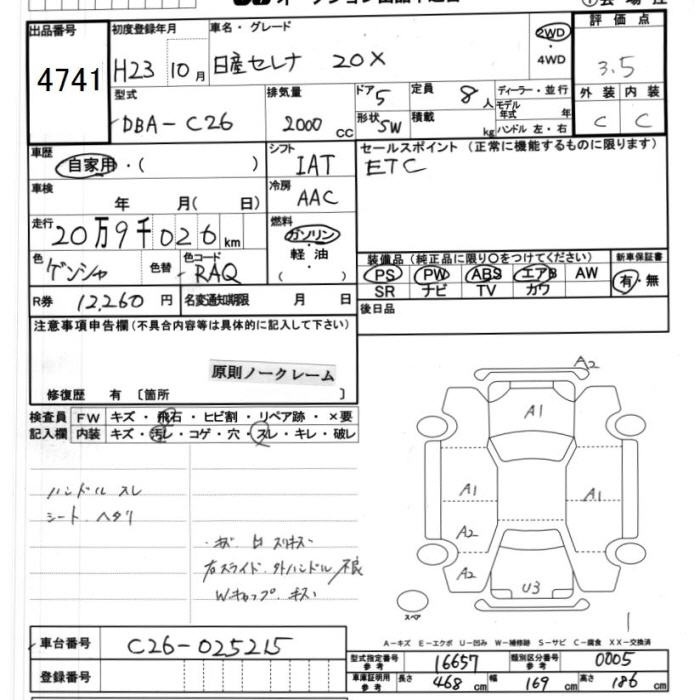 出品番号
4741
初度登録年月
H23 10月
車名・グレード
日産セレナ 20X
2WD
・
4WD
評価点
3.5
外装 内装
C C
型式
DBA-C26
排気量
2000 CC
ドア 5
形状 SW
定員 8人
積載 kg
ディーラー・並行
モデル年式 年
ハンドル 左・右
車歴
自家用・( )
車検
年 月( 日)
シフト
IAT
冷房
AAC
セールスポイント (正常に機能するものに限ります)
ETC
走行
20万9千026km
燃料
ガソリン
・
軽油
( )
色
ゲンシャ
色替
色コード
RAQ
装備品(純正品に限り○をつけてください)
PS PW ABS エアB AW
SR ナビ TV カワ
新車保証書
有・無
R券 12,260円
名変通知期限 月 日
後日品
注意事項申告欄(不具合内容等は具体的に記入して下さい)
原則ノークレーム
修復歴 有 〔箇所 〕
検査員記入欄
FW キズ・飛石・ヒビ割・リペア跡・×要
内装 キズ・汚レ・コゲ・穴・スレ・キレ・破レ
ハンドル スレ
シート ヘタリ
右スライド 外ハンドル不良
Wキャップ キズ
A2
A1
A1
A1
A2
A2
U3
スペア
1
A-キズ E-エクボ U-凹み W-補修跡 S-サビ C-腐食 XX-交換済
車台番号
C26-025215
登録番号
型式指定番号 参考 16657
類別区分番号 参考 0005
車庫証明用 参考 長さ 468cm 幅 169cm 高さ 186cm